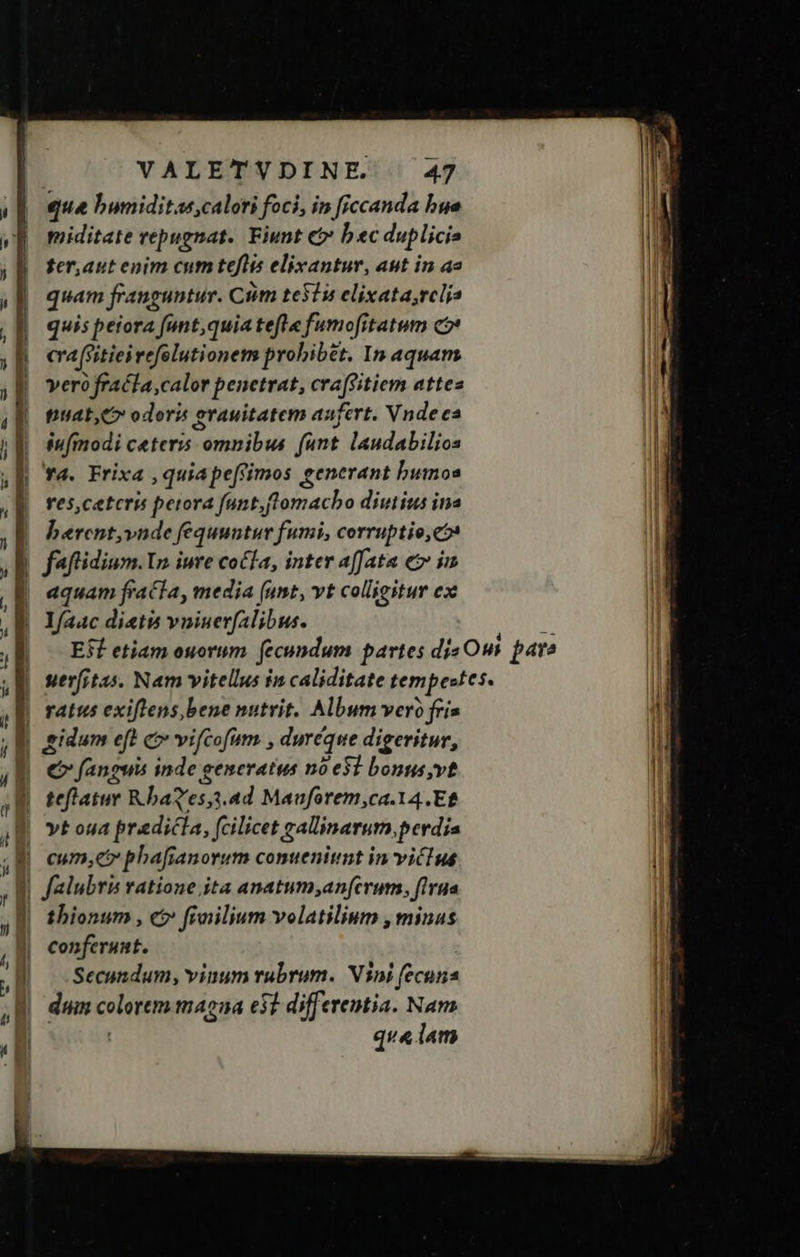 VALETVDINE. 47
quæ humiditas,calori foci, in ſiccanda hu-
miditate repugnat. Fiunt & hæc duplici-
ter,aut enim cum teſtis elixantur, aut in a-
quam franguntur. Cùm teſtis elixata,reli-
quis peiora ſunt,quia teſtæ fumoſitatum &
craſsitiei reſolutionem prohibēt. In aquam
verò fracta,calor penetrat, craſsitiem atte-
nuat,& odoris grauitatem aufert. Vnde e-
iuſmodi cæteris omnibus ſunt laudabilio-
ra. Frixa , quia peſsimos generant humo-
res,cæteris peiora ſunt,ſtomacho diutius in-
hærent,vnde ſequuntur fumi, corruptio,&
faſtidium. In iure cocta, inter aſſata & in
aquam fracta, media ſunt, vt colligitur ex
Iſaac diætis vniuerſalibus.
Eſt etiam ouorum ſecundum partes di-
Oui partes.
uerſitas. Nam vitellus in caliditate tempe-
ratus exiſtens,bene nutrit. Album verò fri-
gidum eſt & viſcoſum , duréque digeritur,
& ſanguis inde generatus nō eſt bonus,vt
teſtatur Rhazes,3.ad Manſorem,ca.14.Et
vt oua prædicta, ſcilicet gallinarum,perdi-
cum,& phaſianorum conueniunt in victus
ſalubris ratione,ita anatum,anſerum, ſtru-
thionum , & ſimilium volatilium , minus
conferunt.
Secundum, vinum rubrum. Vini ſecun-
dum colorem magna eſt differentia. Nam
quædam